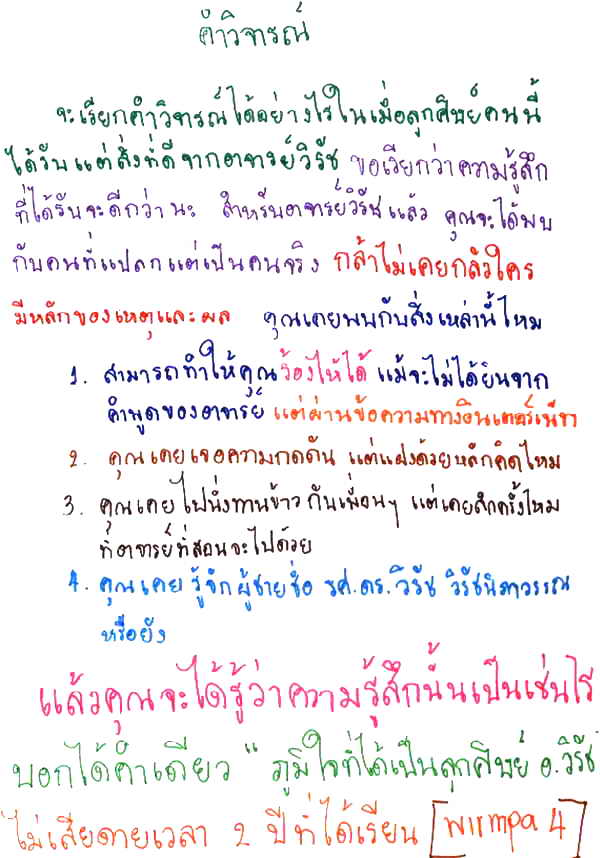 คำวิจารณ์
จะเรียกคำวิจารณ์ได้อย่างไรในเมื่อลูกศิษย์คนนี้
ได้รับแต่สิ่งที่ดีจากอาจารย์วิรัช ขอเรียกว่าความรู้สึก
ที่ได้รับจะดีกว่านะ สำหรับอาจารย์วิรัชแล้ว คุณจะได้พบ
กับคนที่แปลกแต่เป็นคนจริง กล้าไม่เคยกลัวใคร
มีหลักของเหตุและผล คุณเคยพบกับสิ่งเหล่านี้ไหม
1. สามารถทำให้คุณร้องไห้ได้ แม้จะไม่ได้ยินจาก
คำพูดของอาจารย์ แต่ผ่านข้อความทางอินเตอร์เน็ต
2. คุณเคยเจอความกดดัน แต่แฝงด้วยหลักคิดไหม
3. คุณเคยไปนั่งทานข้าวกับเพื่อนๆ แต่เคยสักครั้งไหม
ที่อาจารย์ที่สอนจะไปด้วย
4. คุณเคยรู้จักผู้ชายชื่อ รศ.ดร.วิรัช วิรัชนิภาวรรณ
หรือยัง
แล้วคุณจะได้รู้ว่าความรู้สึกนั้นเป็นเช่นไร
บอกได้คำเดียว "ภูมิใจที่ได้เป็นลูกศิษย์ อ.วิรัช
ไม่เสียดายเวลา 2 ปีที่ได้เรียน